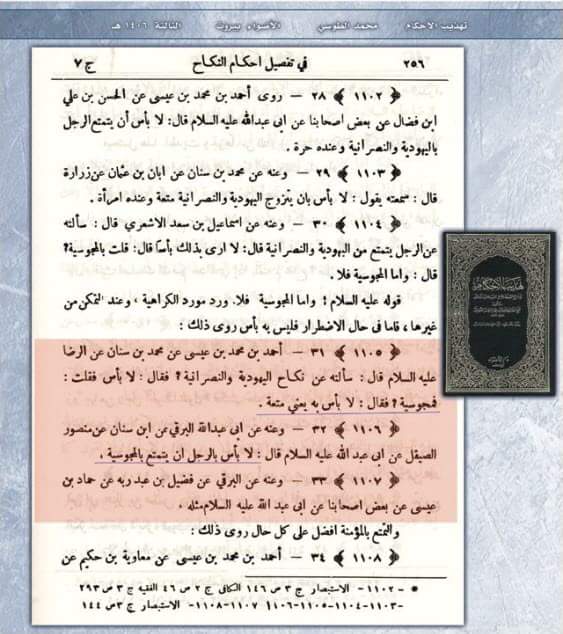 تهذيب الاحكام محمد الطوسي الأضواء بيروت الثالثة ١٤٠٦ هـ
٢٥٦ في تفصيل احكام النكاح ج ٧
﴿ ١١٠٢ ﴾ ٢٨ — روى أحمد بن محمد بن عيسى عن الحسن بن علي
ابن فضال عن بعض اصحابنا عن ابى عبدالله عليه السلام قال: لا بأس أن يتمتع الرجل
باليهودية والنصرانية وعنده حرة .
﴿ ١١٠٣ ﴾ ٢٩ — وعنه عن محمد بن سنان عن ابان بن عثمان عن زرارة
قال : سمعته يقول : لا بأس بان يتزوج اليهودية والنصرانية متعة وعنده امرأة .
﴿ ١١٠٤ ﴾ ٣٠ — وعنه عن اسماعيل بن سعد الاشعري قال : سألته
عن الرجل يتمتع من اليهودية والنصرانية قال: لا ارى بذلك بأسا قال: قلت بالمجوسية؟
قال : واما المجوسية فلا .
قوله عليه السلام : واما المجوسية فلا. ورد مورد الكراهية ، وعند التمكن من
غيرها ، فاما في حال الاضطرار فليس به بأس روى ذلك :
﴿ ١١٠٥ ﴾ ٣١ — أحمد بن محمد بن عيسى عن محمد بن سنان عن الرضا
عليه السلام قال : سألته عن نكاح اليهودية والنصرانية ؟ فقال : لا بأس فقلت :
فمجوسية ؟ فقال : لا بأس به يعني متعة .
﴿ ١١٠٦ ﴾ ٣٢ — وعنه عن ابى عبدالله البرقي عن ابن سنان عن منصور
الصيقل عن ابى عبد الله عليه السلام قال : لا بأس بالرجل ان يتمتع بالمجوسية .
﴿ ١١٠٧ ﴾ ٣٣ — وعنه عن البرقي عن فضيل بن عبد ربه عن حماد بن
عيسى عن بعض اصحابنا عن ابى عبد الله عليه السلام مثله .
والتمتع بالمؤمنة افضل على كل حال روى ذلك :
﴿ ١١٠٨ ﴾ ٣٤ — أحمد بن محمد بن عيسى عن معاوية بن حكيم عن
* — ١١٠٢ — الاستبصار ج ٣ ص ١٤٦ الكافى ج ٢ ص ٤٦ الفقيه ج ٣ ص ٢٩٣
— ١١٠٣ — ١١٠٤ — ١١٠٥ — ١١٠٦ — ١١٠٧ — ١١٠٨ — الاستبصار ج ٣ ص ١٤٤
تهذيب الاحكام